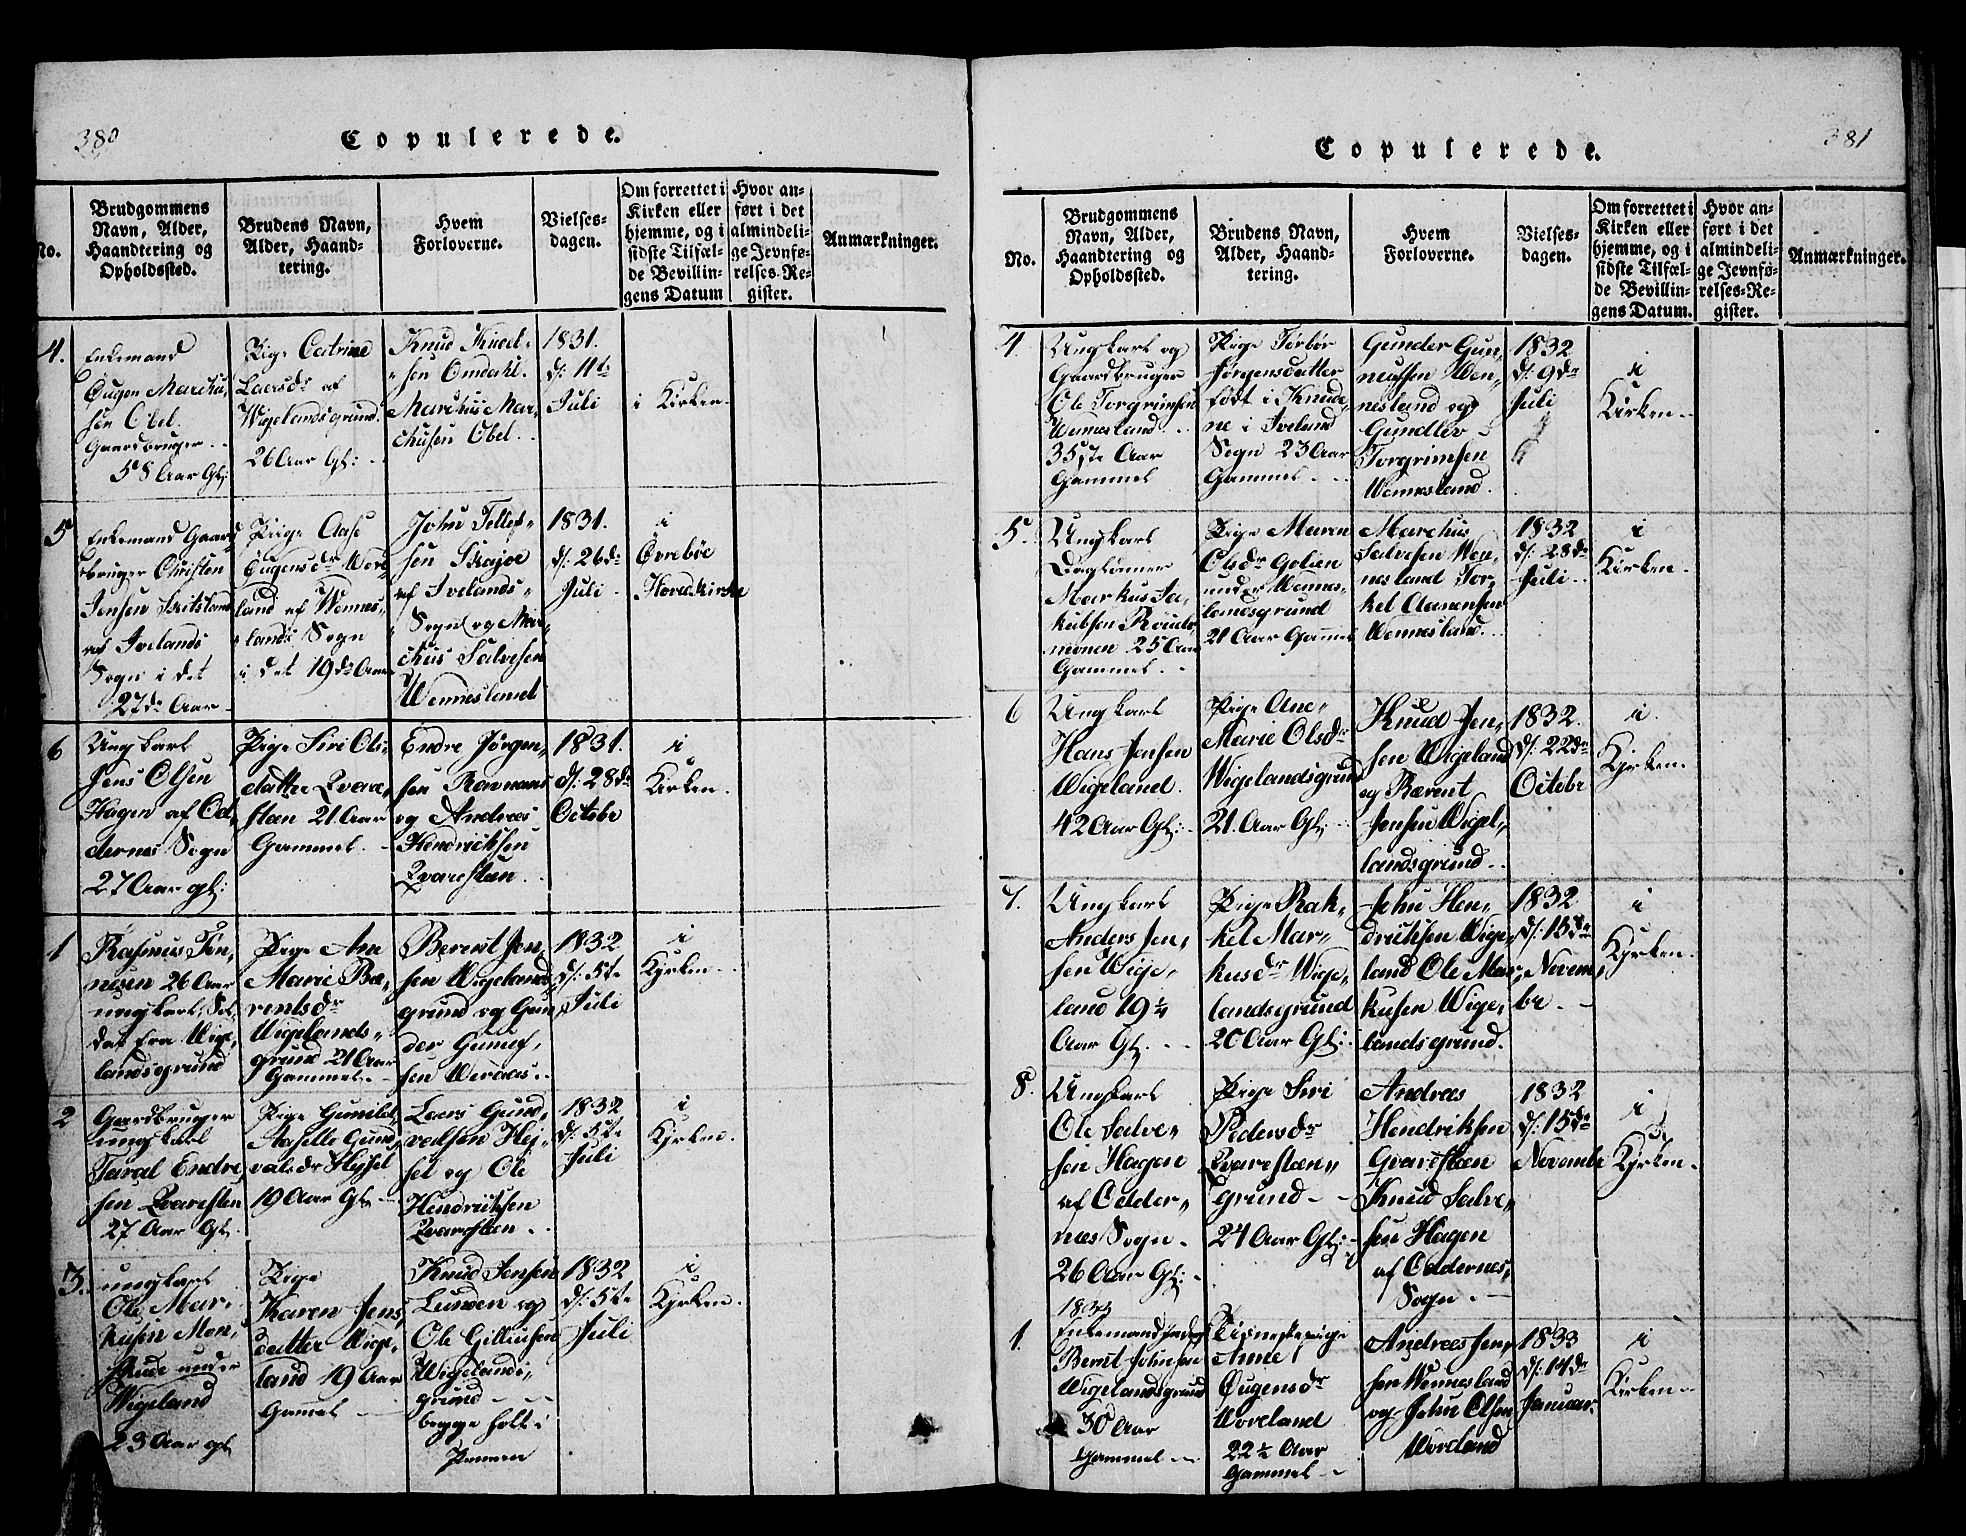 380
Copulerede.
No.
Brudgommens
Navn, Alder,
Haandtering og
Opholdssted.
Brudens Navn,
Alder, Haand-
tering.
Hvem
Forloverne.
Vielses-
dagen.
Om forrettet i
Kirken eller
hjemme, og i
sidste Tilfæl-
de Bevillin-
gens Datum
Hvor an-
ført i det
almindeli-
ge Jevnfø-
relses-Re-
gister.
Anmærkninger.
4.
Enkemand
Ougen Marchu
sen Obel.
Gaardbruger
58 Aar Gl:
Pige Catrine
Laersdr af
Wigelandsgrund
26 Aar Gl:
Knud Knud-
sen Omdahl.
Marchus Mar-
chusen Obel.
1831.
d: 11te
Juli
i Kirken
5
Enkemand Gaard
bruger Christen
Jensen
af Ivelands
Sogn i det
27de Aar
Pige Aase
Ougensdr Wor
land af Wennes-
lands Sogn
i det 19de Aar
John Tellef-
sen Skajse
af Ivelands
Sogn og Mar-
chus Salvesen
Wennesland
1831.
d: 26de
Juli
i
Øvrebøe
Hovedkirke
6
Ungkarl
Jens Olsen
Hagen af Od-
dernes Sogn
27 Aar gl:
Pige Siri Ols-
datter Qvare-
stæn 21 Aar
Gammel.
Endre Jørgen-
sen Ravnaas
og Andreas
Hendrichsen
Qvarestæn.
1831.
d: 28de
Octobr
i
Kirken.
1
Rasmus Tøn-
nesen 26 Aar
ungkarl, Sol-
dat fra Wige-
landsgrund
Pige Ane
Marie Bæ-
rentsdr
Wigelands-
grund 21 Aar
Gammel.
Berent Jen-
sen Wigelands
grund og Gun
der Gunuf-
sen Weraas.
1832
d: 5te
Juli
i
Kirken.
2
Gaardbruger
ungkarl
Taral Endre
sen Qvaresten
27 Aar Gl:
Pige Gunild
Aaselle Gund
valsdr Heisel
19 Aar Gl.
Laers Gund-
valsen Hei-
sel og Ole
Hendriksen
Qvarestæn.
1832
d: 5te
Juli
i
Kirken.
3.
ungkarl
Ole Mar-
kusen Mon-
under
Wigeland
23 Aar gl
Pige
Karen Jens
datter Wige-
land 19 Aar
Gamel
Knud Jensen
Lunden og
Ole Gilliusen
Wigelands-
grund
begge holt i
1832
d: 5te
Juli
i
Kirken.
381
Copulerede.
No.
Brudgommens
Navn, Alder,
Haandtering og
Opholdssted.
Brudens Navn,
Alder, Haand-
tering.
Hvem
Forloverne.
Vielses-
dagen.
Om forrettet i
Kirken eller
hjemme, og i
sidste Tilfæl-
de Bevillin-
gens Datum.
Hvor an-
ført i det
almindeli-
ge Jevnfø-
relses-Re-
gister.
Anmærkninger.
4.
Ungkarl og
Gaardbruger
Ole Torgrimsen
Wennesland
35ste Aar
Gammel
Pige Torbor
Jørgensdatter
født i Knude
ne i Iveland
Sogn 23 Aar
Gammel.
Gunder Gun-
nufsen Wen-
nesland og
Gundlev
Torgrimsen
Wennesland.
1832
d: 9de
Juli
i
Kirken.
5.
Ungkarl
Daglønner
Markus Ja-
kobsen
monen 25 Aar
Gammel.
Pige Maren
Olsdr Golien
under Wennes-
landsgrund
21 Aar Gammel
Marchus
Salvesen Wen-
nesland Tor-
kel Aanensen
Wennesland.
1832
d: 28de
Juli
i
Kirken.
6
Ungkarl
Hans Jensen
Wigeland.
42 Aar Gl:
Pige Ane
Marie Olsdr
Wigelandsgrund
21. Aar Gl:
Knud Jen-
sen Wigeland
og Bærent
Jensen Wigel-
landsgrund.
1832.
d: 22de
Octobr
i.
Kirken.
7.
Ungkarl
Anders Jen-
sen Wige-
land 19½
Aar Gl.
Pige Rak-
kel Mar-
kusdr Wige-
landsgrund
20 Aar Gl:
John Hen-
driksen Wige-
land Ole Mar
kusen Wige-
landsgrund.
1832
d: 15de
Novem-
br
i
Kirken.
8.
Ungkarl
Ole Salve-
sen Hagen
af Odder-
næs Sogn.
26 Aar Gl:
Pige Siri
Pedersdr
Qvarestæn-
grund
24 Aar Gl:
Andreas
Hendriksen
Qvarestæn
Knud Salve-
sen Hagen
af Oddernes
Sogn.
1832
d: 15de
Novembr
i
Kirken.
1833
1.
Enkemand
Bernt Johnsen
Wigelandsgrund
30 Aar
Gammel
Anne
Ougensdr
Woreland
22½ Aar
Gammel
Andreas Jen-
sen Wennesland
og John Olsen
Woreland
1833
d: 14de
Januar.
i
Kirken.